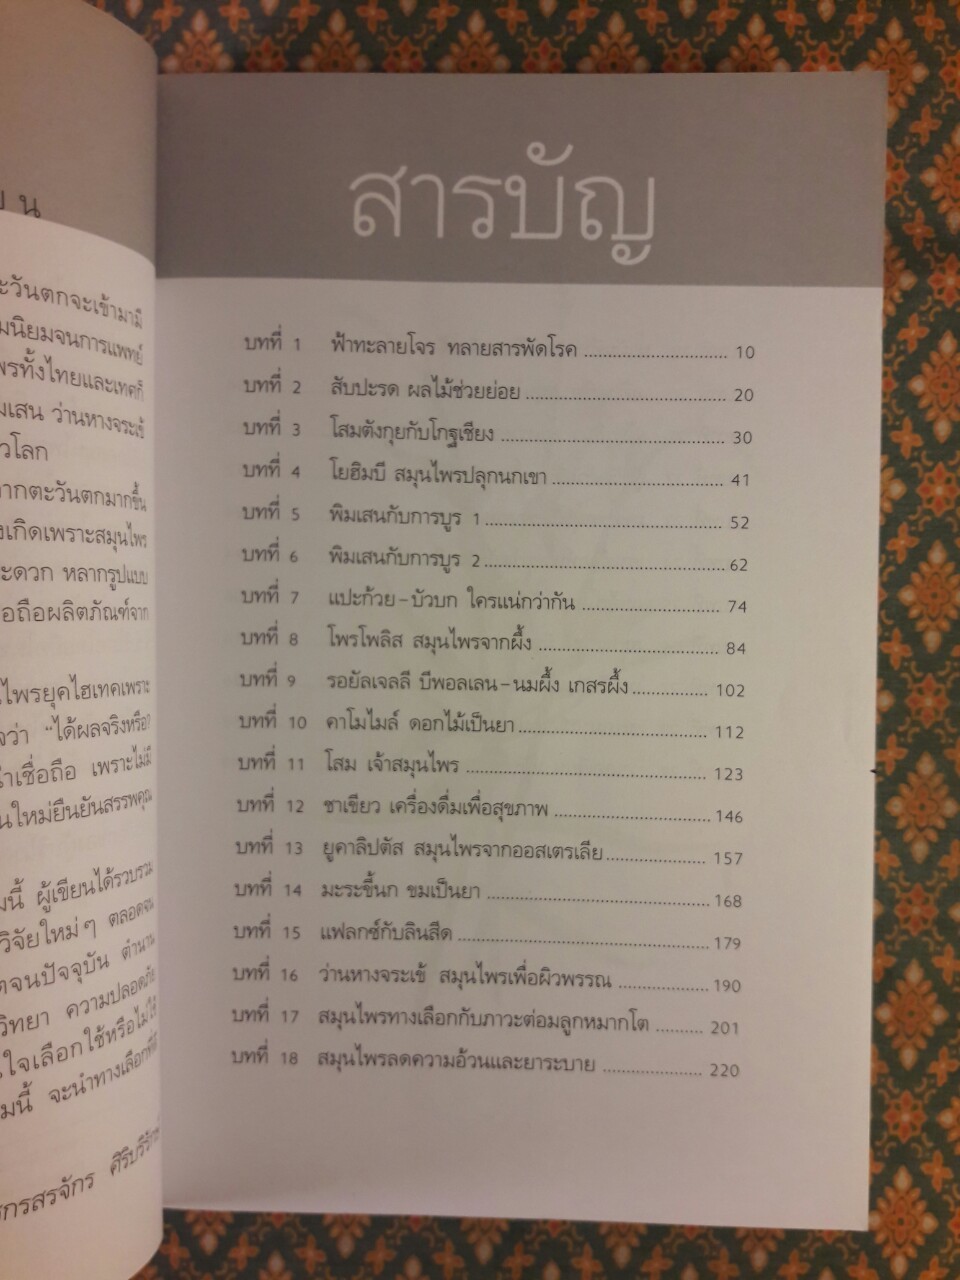 น
ะวันตกจะเข้ามามี
มนิยมจนการแพทย์
พรทั้งไทยและเทศก็
มเสน ว่านหางจระเข้
วโลก
ากตะวันตกมากขึ้น
งเกิดเพราะสมุนไพร
ะดวก หลากรูปแบบ
อถือผลิตภัณฑ์จาก
ไพรยุคไฮเทคเพราะ
จว่า "ได้ผลจริงหรือ?
น่าเชื่อถือ เพราะไม่มี
นใหม่ยืนยันสรรพคุณ
มนี้ ผู้เขียนได้รวบรวม
วิจัยใหม่ๆ ตลอดจน
ตจนปัจจุบัน ตำนาน
วิทยา ความปลอดภัย
นใจเลือกใช้หรือไม่ใช้
มนี้ จะนำทางเลือกที่ดี
กรสรจักร ศิริบริรักษ์
สารบัญ
บทที่ 1 ฟ้าทะลายโจร ทลายสารพัดโรค ........................... 10
บทที่ 2 สับปะรด ผลไม้ช่วยย่อย ...................................... 20
บทที่ 3 โสมตังกุยกับโกฐเชียง .......................................... 30
บทที่ 4 โยฮิมบี สมุนไพรปลุกนกเขา ................................. 41
บทที่ 5 พิมเสนกับการบูร 1 ............................................ 52
บทที่ 6 พิมเสนกับการบูร 2 ............................................ 62
บทที่ 7 แปะก้วย-บัวบก ใครแน่กว่ากัน .......................... 74
บทที่ 8 โพรโพลิส สมุนไพรจากผึ้ง .................................. 84
บทที่ 9 รอยัลเจลลี บีพอลเลน-นมผึ้ง เกสรผึ้ง .............. 102
บทที่ 10 คาโมไมล์ ดอกไม้เป็นยา .................................... 112
บทที่ 11 โสม เจ้าสมุนไพร ............................................. 123
บทที่ 12 ชาเขียว เครื่องดื่มเพื่อสุขภาพ ............................. 146
บทที่ 13 ยูคาลิปตัส สมุนไพรจากออสเตรเลีย ................... 157
บทที่ 14 มะระขี้นก ขมเป็นยา .......................................... 168
บทที่ 15 แฟลกซ์กับลินสีด ................................................ 179
บทที่ 16 ว่านหางจระเข้ สมุนไพรเพื่อผิวพรรณ ................. 190
บทที่ 17 สมุนไพรทางเลือกกับภาวะต่อมลูกหมากโต ......... 201
บทที่ 18 สมุนไพรลดความอ้วนและยาระบาย ................... 220